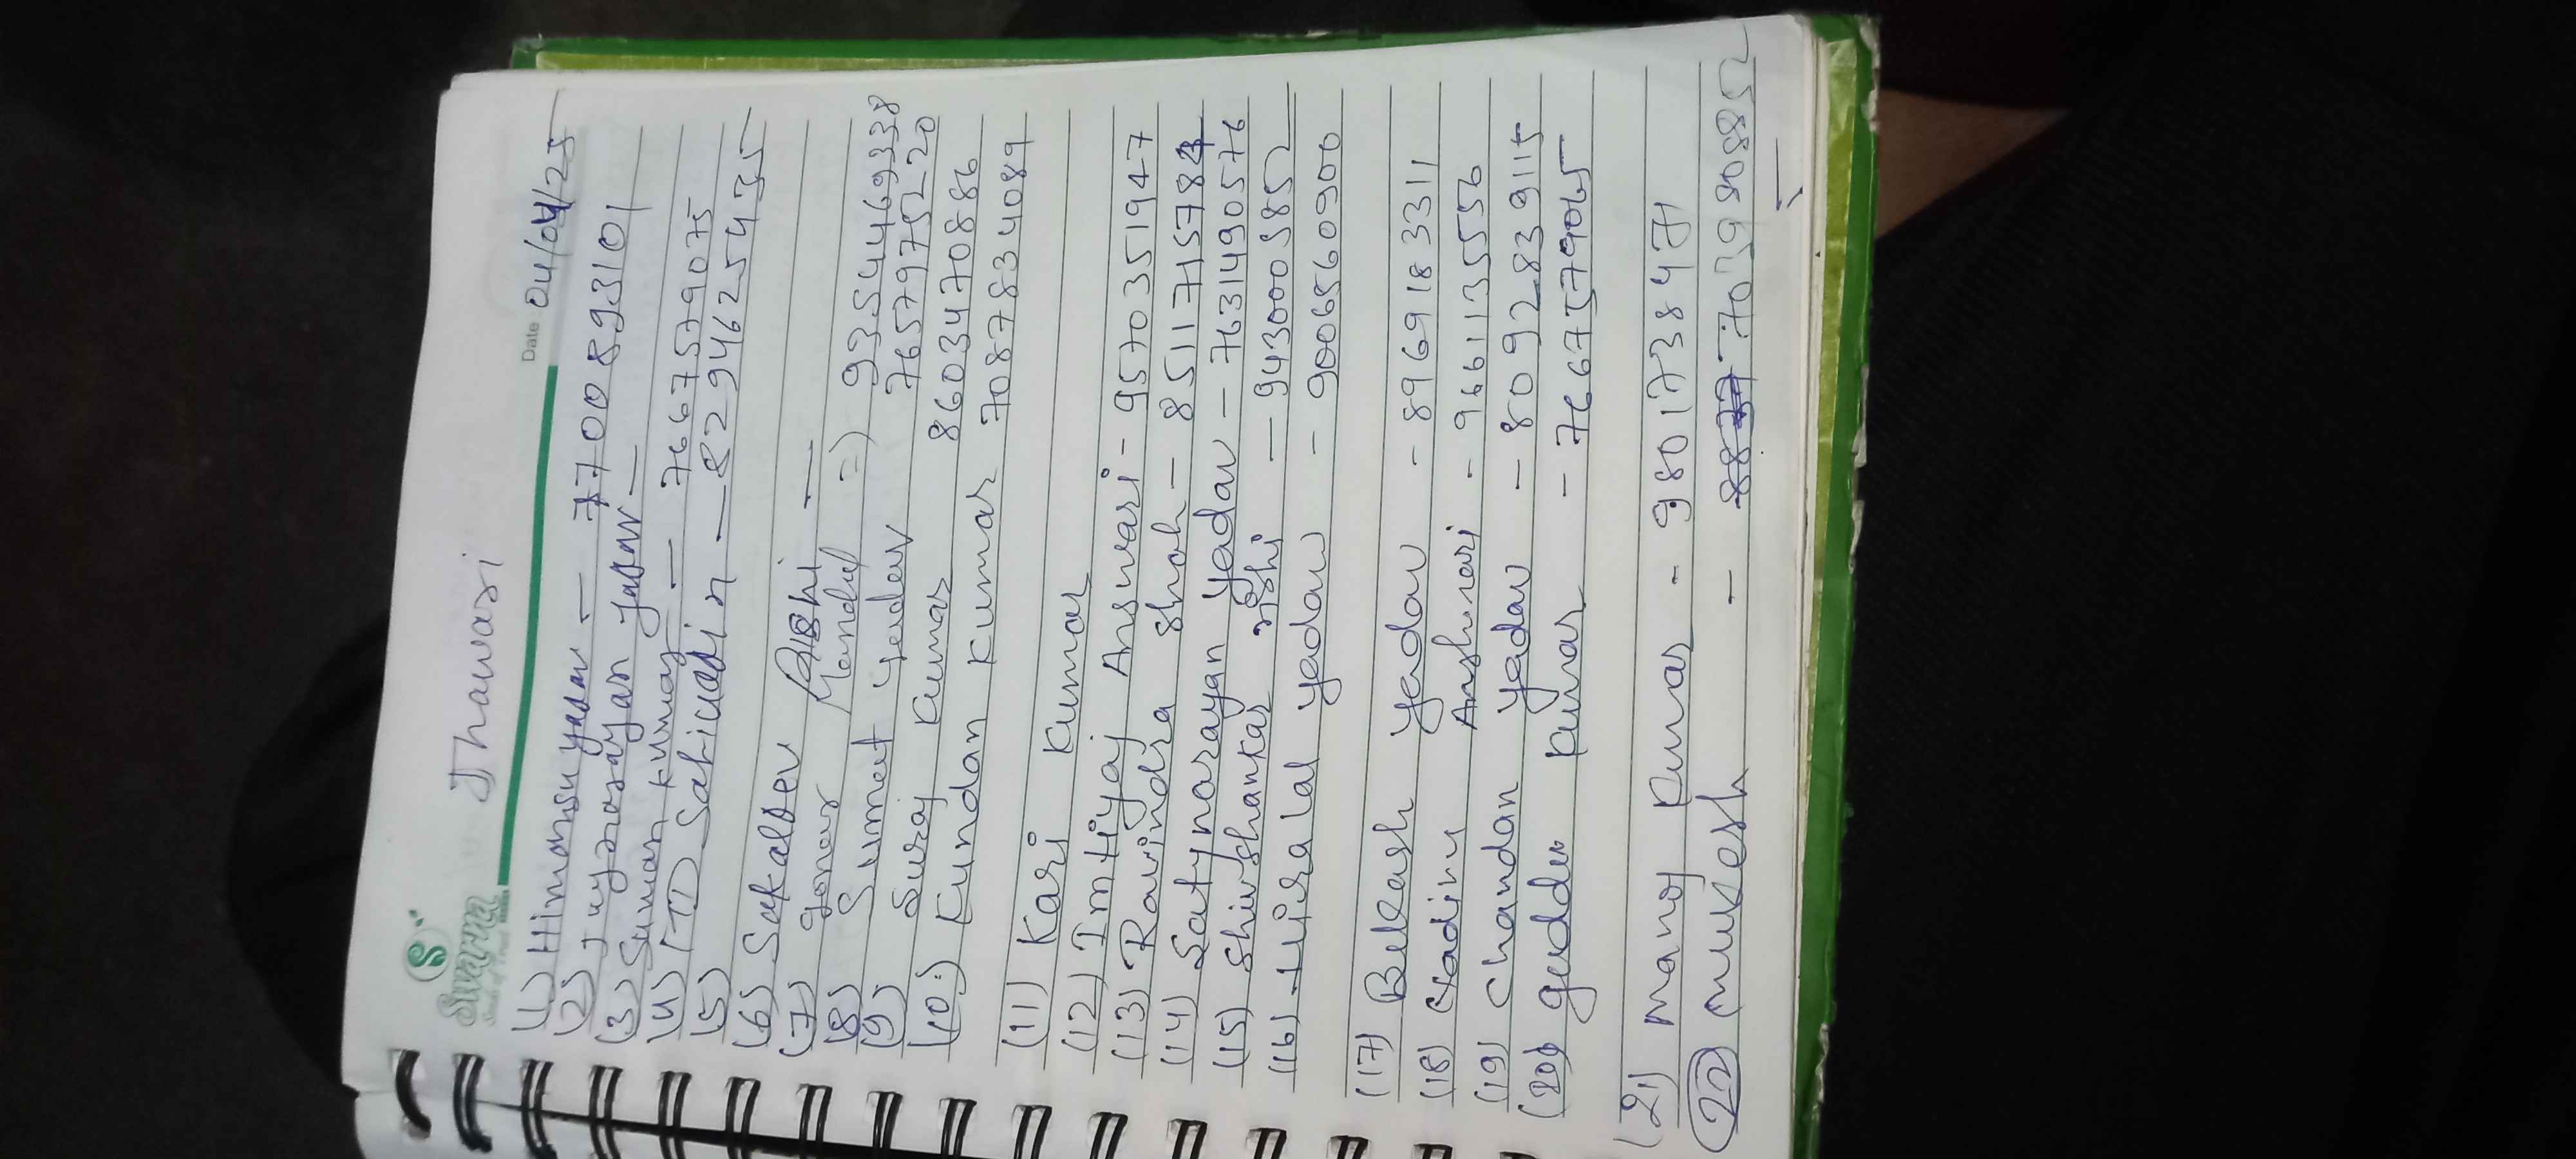 Swarna
Jhawari
Date 04/04/25
(1) Himansu yadav - 7700893101
(2) Jaynarayan yadav -
(3) Suman Kumar - 7667579075
(4) MD Sahiuddin - 8294625475
(5)
(6) Sakaldev Rishi -
(7) Mandal =) 9354469338
(8) Summat yadav 7657975220
(9) Suraj Kumar 8603470886
(10) Kundan Kumar 7087834089
(11) Kari Kumar
(12) Imtiyaj Answari - 9570351947
(13) Ravindra Shah - 8511715784
(14) Satynarayan Yadav - 7631490576
(15) Shivshankar - 9430005852
(16) Hiralal yadav - 9006560900
(17) Bikash yadav - 8969183311
(18) Anshwari - 9661135556
(19) Chandan yadav - 8092839115
(20) guddu kumar - 7667579065
(21) Manoj Kumar - 980173847
(22) Mukesh - 7039808852